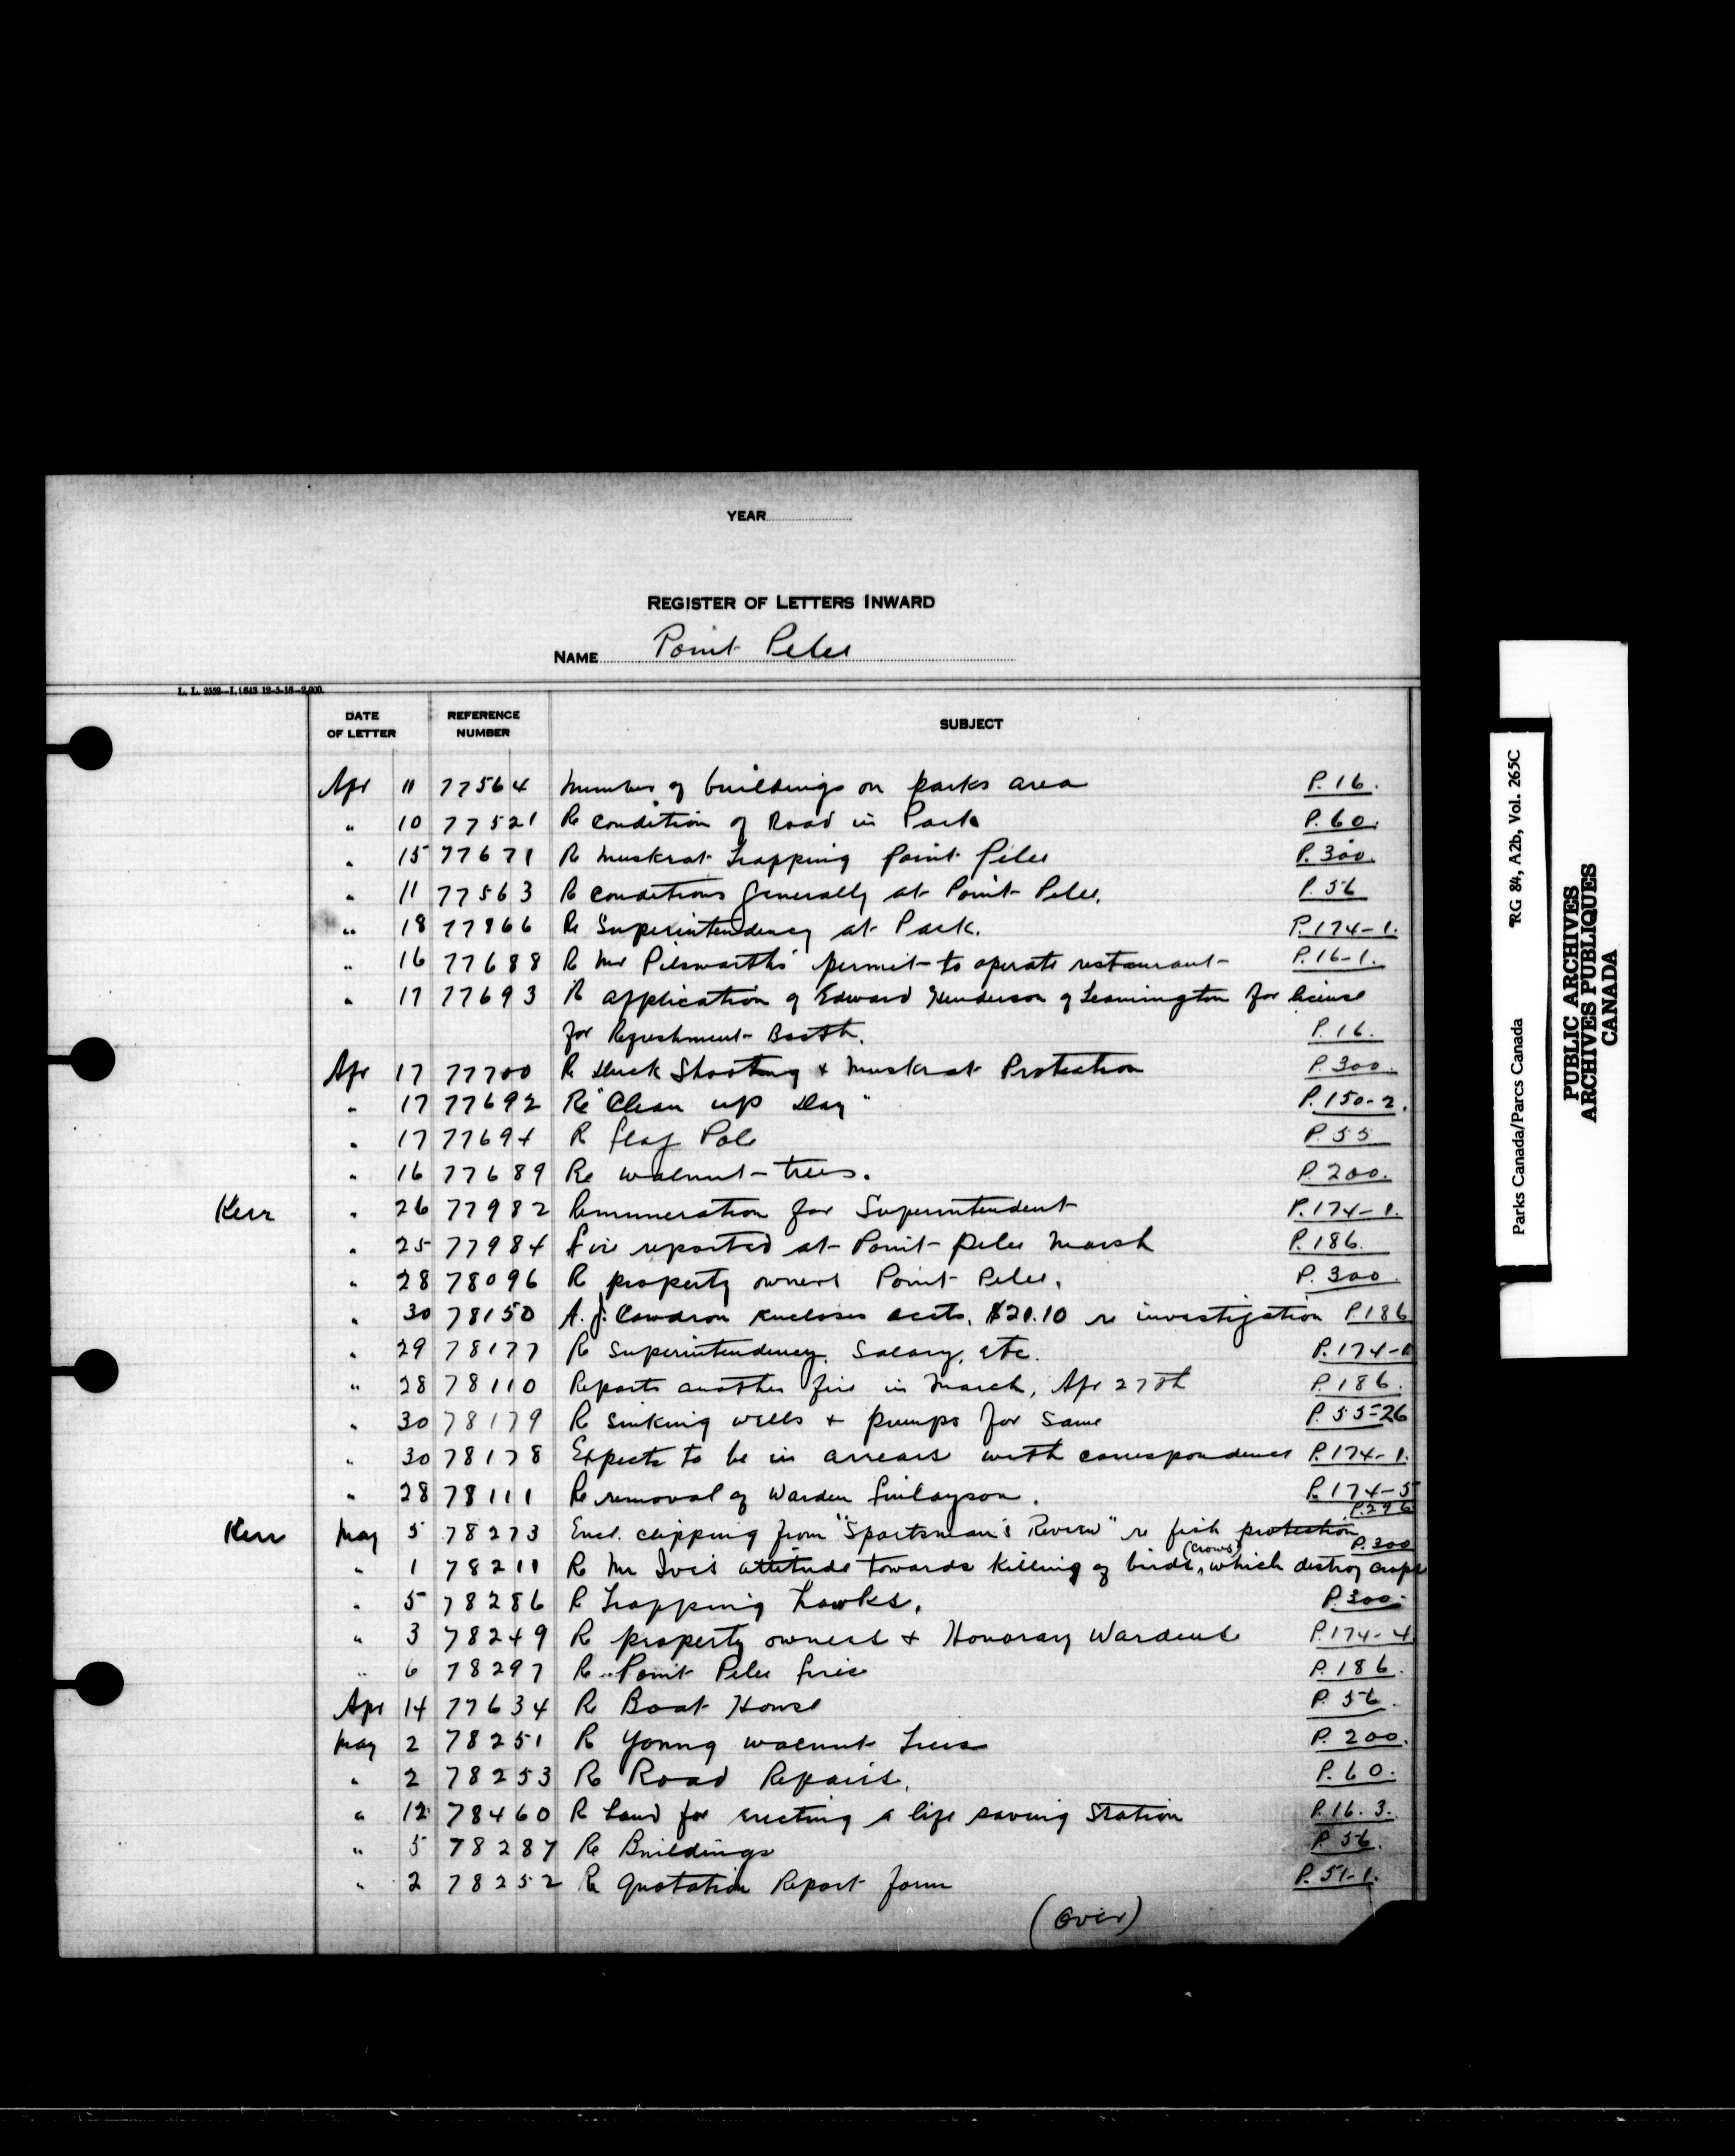 YEAR
REGISTER OF LETTERS INWARD
NAME Point Pelee
L. L. 2552—I. 1643 12-5-16—2,000.
DATE OF LETTER REFERENCE NUMBER SUBJECT
Apr 11 77564 Number of buildings on parks area P.16.
" 10 77521 Re condition of Road in Park P.60.
" 15 77671 Re Muskrat Trapping Point Pelee P.300.
" 11 77563 Re conditions generally at Point Pelee. P.56
" 18 77866 Re Superintendency at Park. P.174-1.
" 16 77688 Re Mr Pilsworth's permit to operate restaurant P.16-1.
" 17 77693 Re application of Edward Henderson of Leamington for license
for Refreshment Booth. P.16.
Apr 17 77700 Re Duck Shooting & Muskrat Protection P.300.
" 17 77692 Re "Clean up Day" P.150-2.
" 17 77694 Re flag Pole P.55
" 16 77689 Re walnut-trees. P.200.
Kerr " 26 77982 Remuneration for Superintendent P.174-1.
" 25 77984 Fire reported at Point Pelee Marsh P.186.
" 28 78096 Re property owners Point Pelee. P.300.
" 30 78150 A. J. encloses accts. $20.10 re investigation P.186
" 29 78177 Re Superintendency, Salary, etc. P.174-1
" 28 78110 Reports another fire in March, Apr 27th P.186.
" 30 78179 Re sinking wells & pumps for same P.55-26
" 30 78178 Expects to be in arrears with correspondence P.174-1.
" 28 78111 Re removal of Warden Finlayson. P.174-5
P.296
Kerr May 5 78273 Encl. clipping from "Sportsman's Review" re fish protection
P.300
" 1 78211 Re Mr Ives attitude towards killing of birds, (crows) which destroy crops
" 5 78286 Re Trapping hawks. P.300.
" 3 78249 Re property owners & Honorary Wardens P.174-4
" 6 78297 Re Point Pelee fires P.186.
Apr 14 77634 Re Boat House P.56.
May 2 78251 Re Young walnut Trees P.200.
" 2 78253 Re Road Repairs. P.60.
" 12 78460 Re Land for erecting a life saving Station P.16.3.
" 5 78287 Re Buildings P.56.
" 2 78252 Re Quotation Report form P.51-1.
(Over)
Parks Canada/Parcs Canada RG 84, A2b, Vol. 265C
PUBLIC ARCHIVES
ARCHIVES PUBLIQUES
CANADA